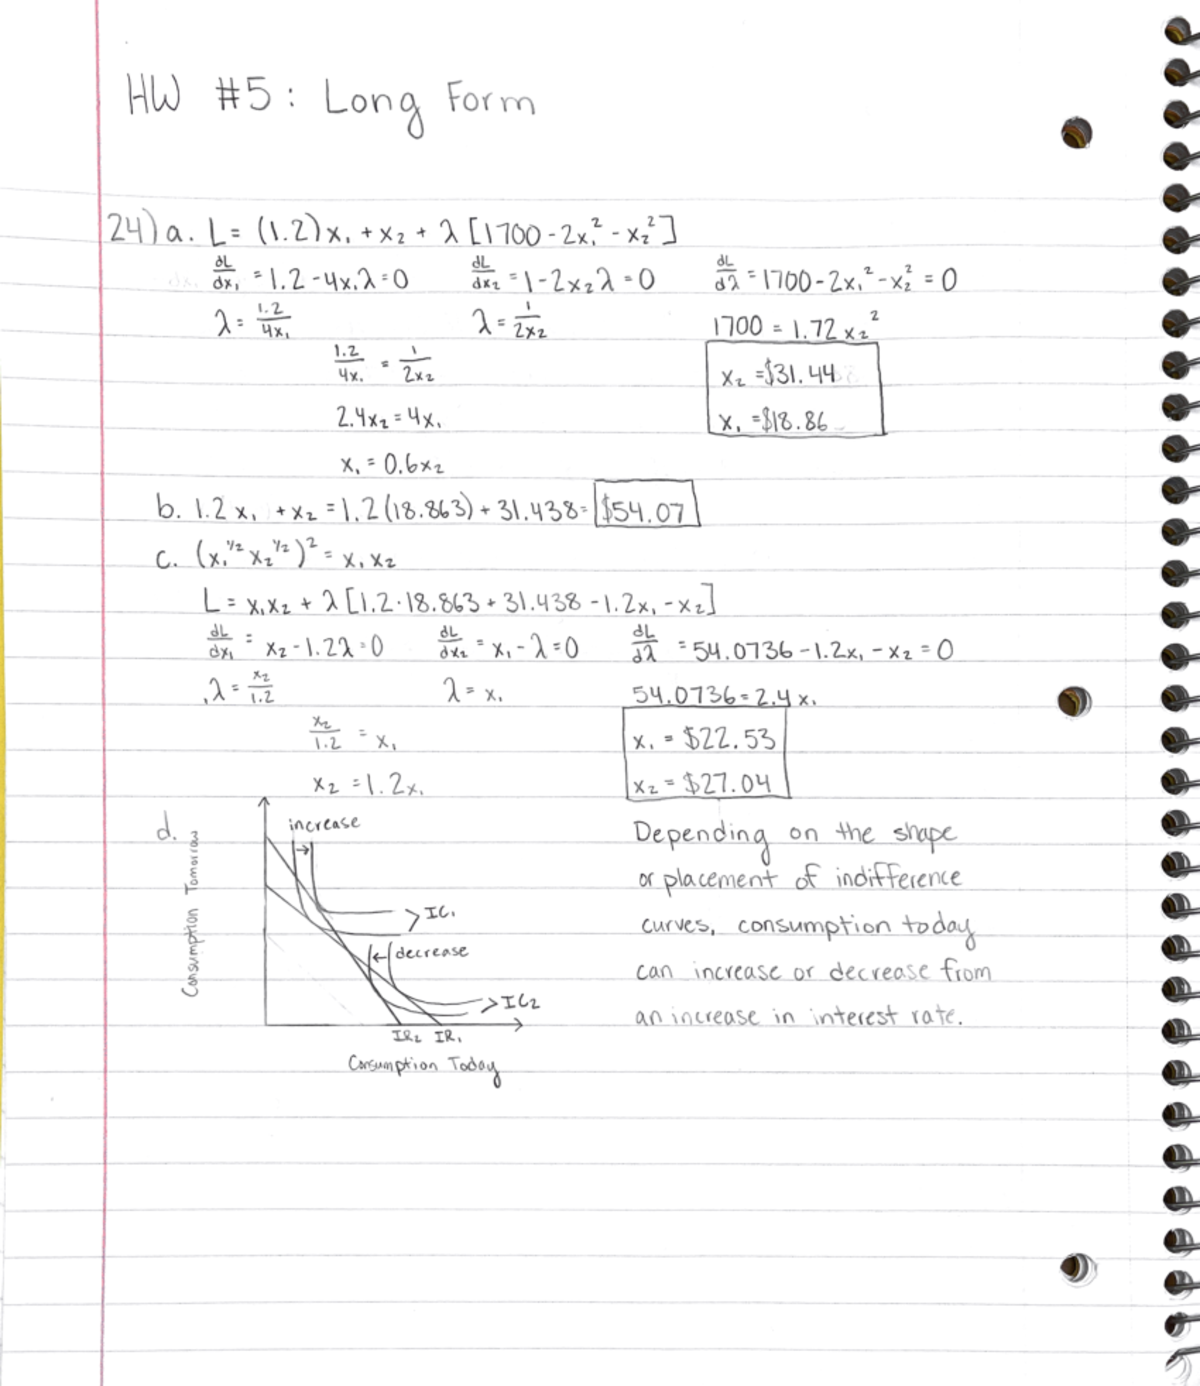 HW #5: Long Form
24) a. L = (1.2)x₁ + x₂ + λ [1700 - 2x₁² - x₂²]
dL/dx₁ = 1.2 - 4x₁λ = 0 dL/dx₂ = 1 - 2x₂λ = 0 dL/dλ = 1700 - 2x₁² - x₂² = 0
λ = 1.2/4x₁ λ = 1/2x₂ 1700 = 1.72 x₂²
1.2/4x₁ = 1/2x₂ x₂ = $31.44
2.4x₂ = 4x₁ x₁ = $18.86
x₁ = 0.6x₂
b. 1.2 x₁ + x₂ = 1.2(18.863) + 31.438 = $54.07
c. (x₁^1/2 x₂^1/2)² = x₁ x₂
L = x₁x₂ + λ [1.2·18.863 + 31.438 - 1.2x₁ - x₂]
dL/dx₁ = x₂ - 1.2λ = 0 dL/dx₂ = x₁ - λ = 0 dL/dλ = 54.0736 - 1.2x₁ - x₂ = 0
λ = x₂/1.2 λ = x₁ 54.0736 = 2.4x₁
x₂/1.2 = x₁ x₁ = $22.53
x₂ = 1.2x₁ x₂ = $27.04
d.
Consumption Tomorrow
increase
IC₁
decrease
IC₂
IR₂ IR₁
Consumption Today
Depending on the shape
or placement of indifference
curves, consumption today
can increase or decrease from
an increase in interest rate.